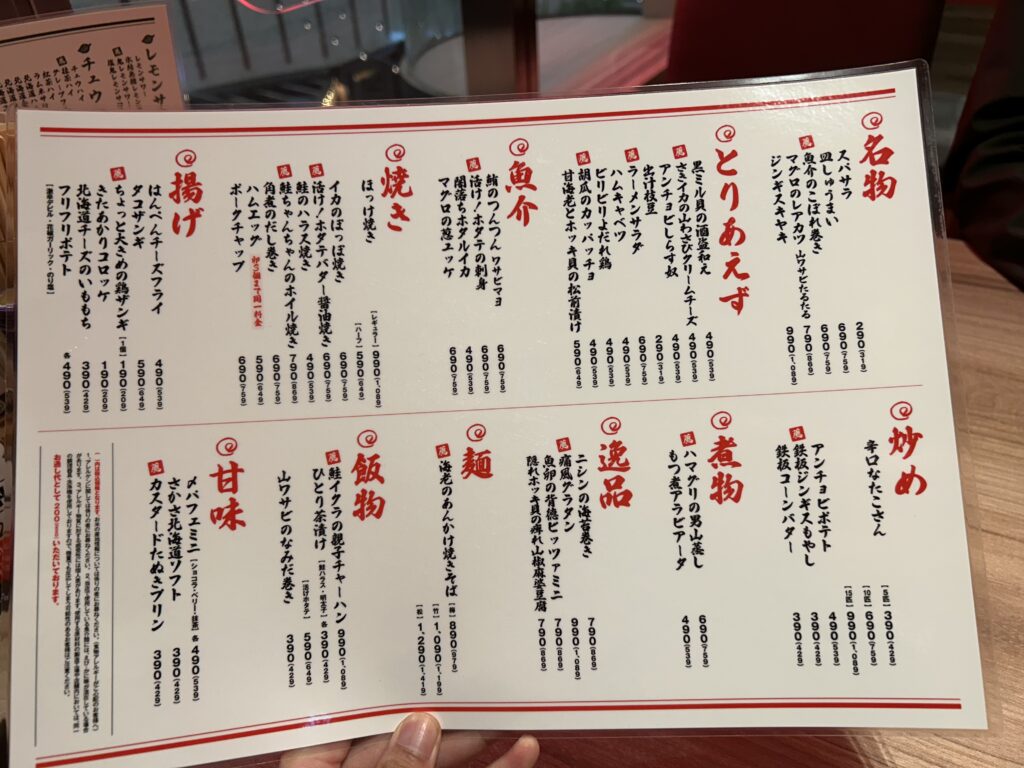 名物
スパサラ 290(319)
皿しゅうまい 690(759)
魚介のこぼれ巻き 690(759)
マグロのレアカツ 山ワサビたるたる 790(869)
ジンギスキヤキ 990(1,089)
とりあえず
黒ミル貝の酒盗和え 490(539)
さきイカの山わさびクリームチーズ 490(539)
アンチョビしらす奴 490(539)
出汁枝豆 290(319)
ラーメンサラダ 690(759)
ハムキャベツ 490(539)
ビリビリよだれ鶏 490(539)
胡瓜のカッパッチョ 490(539)
甘海老とホッキ貝の松前漬け 590(649)
魚介
鮪のつんつん ワサビマヨ 690(759)
活け!ホタテの刺身 690(759)
闇落ちホタルイカ 490(539)
マグロの葱ユッケ 690(759)
焼き
ほっけ焼き [レギュラー] 990(1,089)
[ハーフ] 590(649)
イカのぽっぽ焼き 690(759)
活け!ホタテバター醤油焼き 690(759)
鮭のハラス焼き 490(539)
鮭ちゃんちゃんのホイル焼き 790(869)
角煮のだし巻き 690(759)
ハムエッグ 卵3個まで同一料金 590(649)
ポークチャップ 690(759)
揚げ
はんぺんチーズフライ 490(539)
タコザンギ 590(649)
ちょっと大きめの鶏ザンギ [1個] 190(209)
きたあかりコロッケ 190(209)
北海道チーズのいももち 390(429)
フリフリポテト 各 490(539)
炒め
辛口なたこさん [5匹] 390(429)
[10匹] 690(759)
[15匹] 990(1,089)
アンチョビポテト 490(539)
鉄板ジンギスもやし 390(429)
鉄板コーンバター 390(429)
煮物
ハマグリの男山蒸し 690(759)
もつ煮アラビアータ 490(539)
逸品
ニシンの海苔巻き 790(869)
痛風グラタン 990(1,089)
魚卵の背徳ピッツァミニ 790(869)
隠れホッキ貝の痺れ山椒麻婆豆腐 790(869)
麺
海老のあんかけ焼きそば [梅] 890(979)
[竹] 1,090(1,199)
[松] 1,290(1,419)
飯物
鮭イクラの親子チャーハン 990(1,089)
ひとり茶漬け [鮭ハラス・明太子] 各 390(429)
[活けホタテ] 590(649)
山ワサビのなみだ巻き 390(429)
甘味
〆パフェミニ [ショコラ・ベリー・抹茶] 各 490(539)
さかさ北海道ソフト 390(429)
カスタードたぬきプリン 390(429)
お通し代として200(220)いただいております。
レモンサワー
チュウハイ